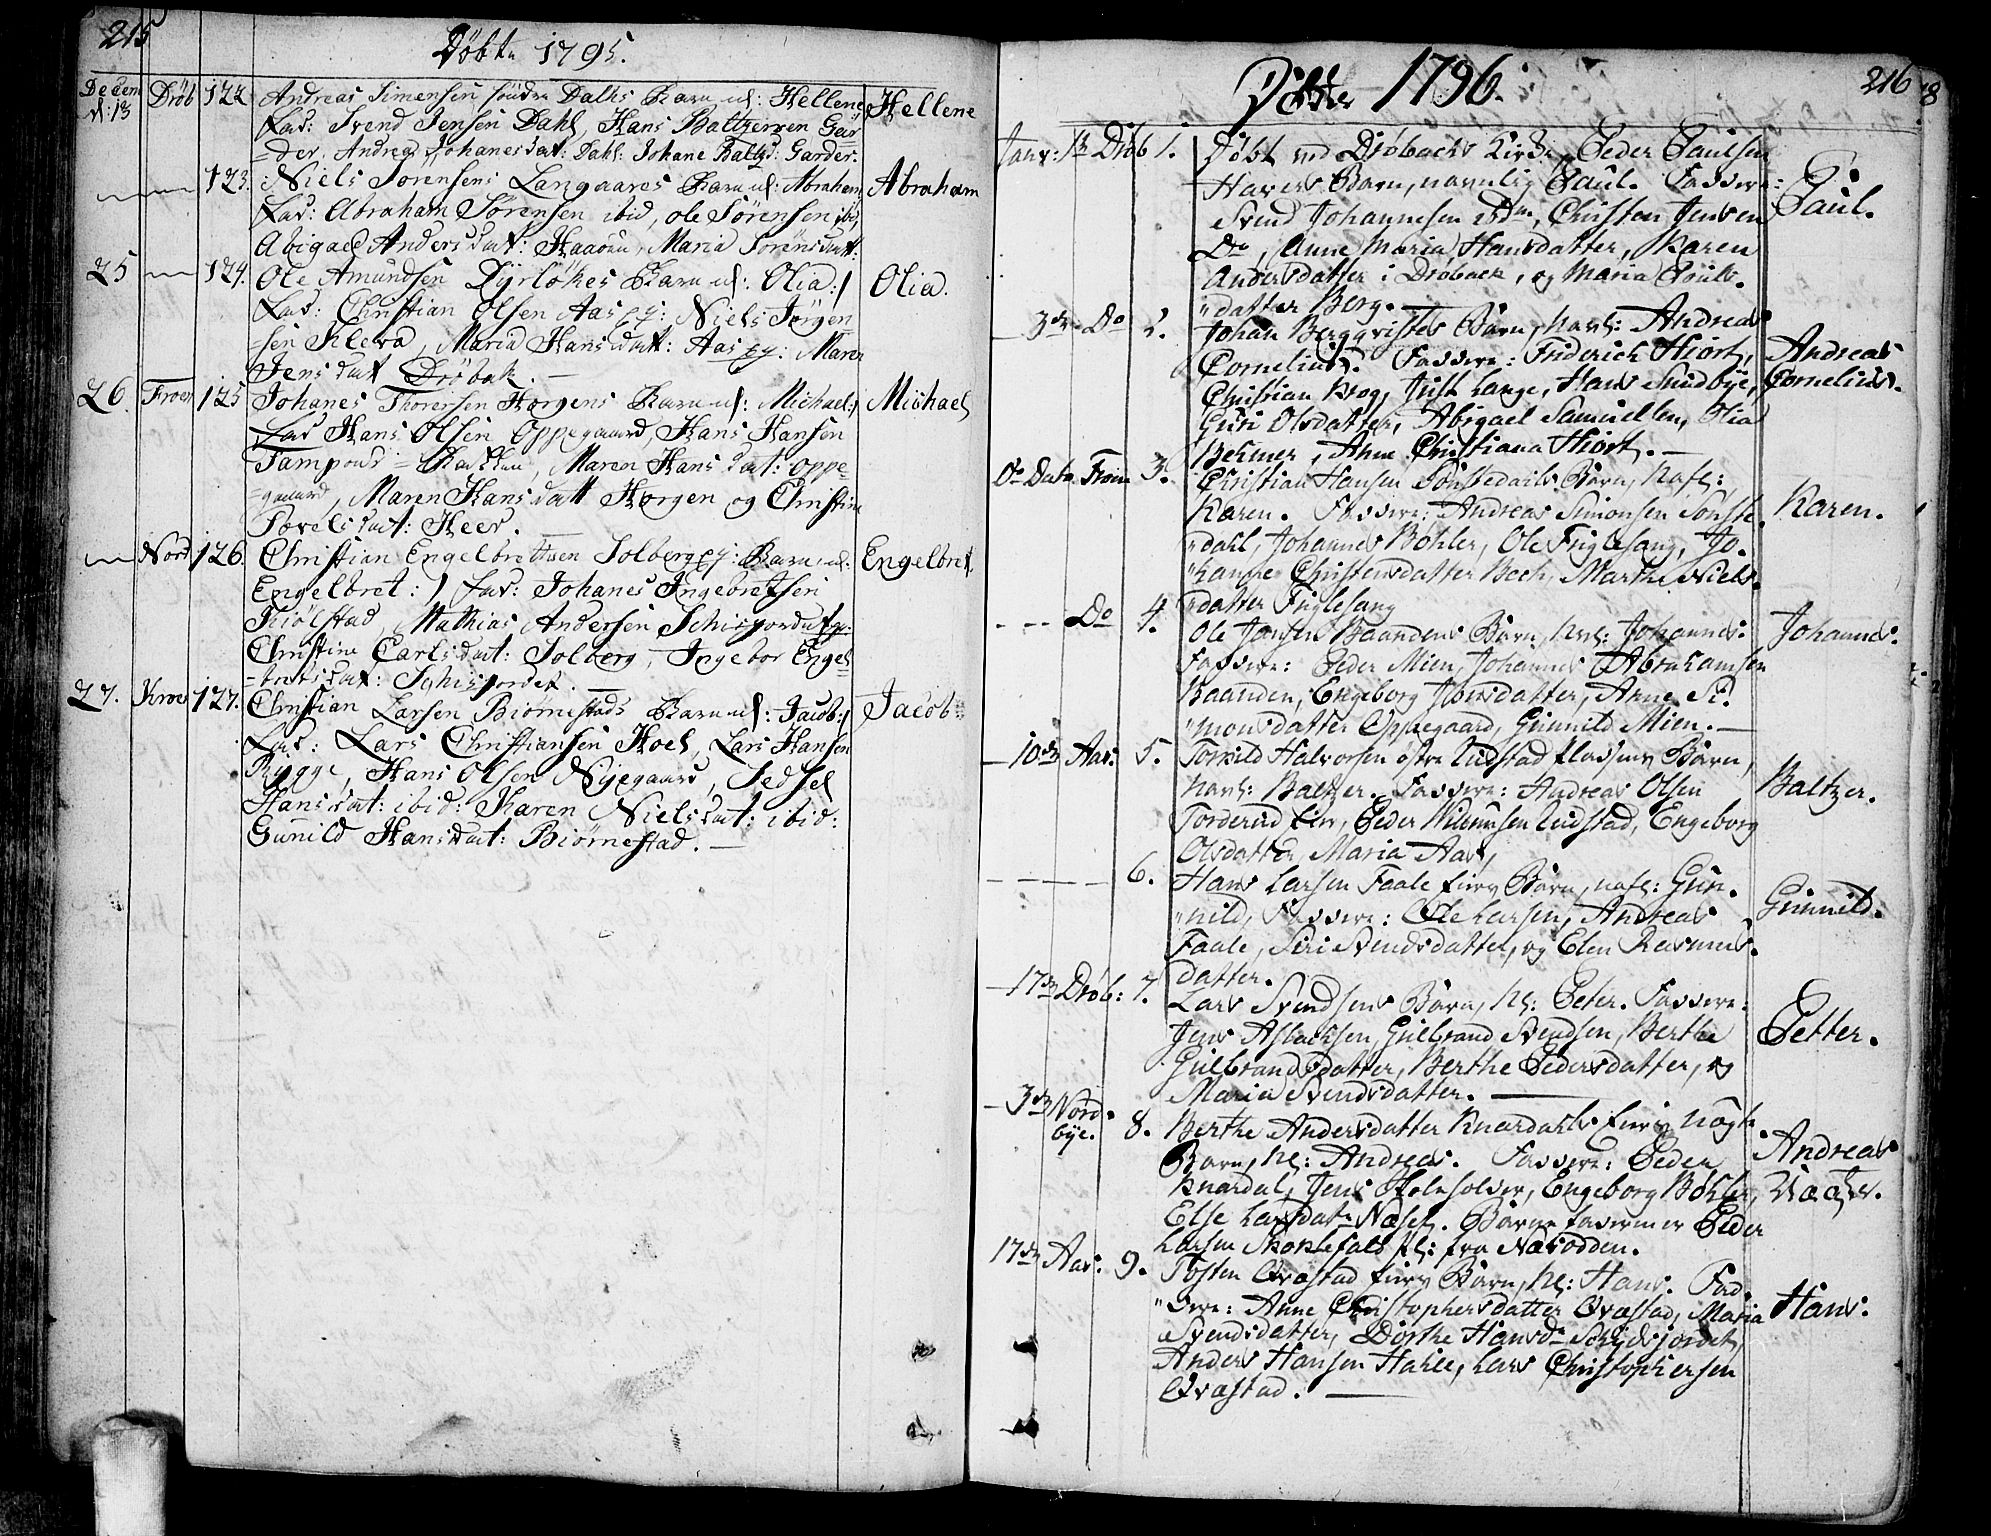 215
Döbte 1795.
Decem d: 13 Dröb 122. Andreas Simensen söndre Dalhs Barn n: Hellene Hellene
Fad: Svend Jensen Dahl, Hans Baltzersen Gar
=der, Andrea Johanesdat: Dahl: Johane Baltzd: Garder.
123. Niels Sörensens Langaares Barn n: Abraham Abraham
Fad: Abraham Sörensen ibid, ole Sörensen ibd,
Abigael Andersdat: Haaöen, Maria Sörensdatt:
25 124. Ole Amundsen Dyrlökes Barn n: Olia:/ Olia.
Fad: Christian Olsen Aas ej: Niels Jörgen
=sen Kleva, Maria Hansdatt: Aas ej: Maren
Jensdat Dröbak. —
26. Froen 125 Johanes Thoresen Horgens Barn n: Michael:/ Michael
Fad Hans Olsen Oppegaard, Hans Hansen
Tampour = Bakken, Maren Hansdat: Oppe=
=gaard, Maren Hansdatt Horgen og Christine
Povelsdat: Heer.
Nord 126. Christian Engelbretsen Solberg ej: Barn n: Engelbret.
Engelbret:/ Fad: Johanes Ingebretsen
Kiölstad, Mathias Andersen Schisjordet ej:
Christine Carlsdat: Solberg, Ingebor Engel
=bretsdat: Schisjordet. —
27. Kroer 127. Christian Larsen Biörnestads Barn n: Jacob:/ Jacob
Fad: Lars Christiansen Hoel, Lars Hansen
Rygge, Hans Olsen Nyegaard, Sedsel
Hansdat: ibid: Karen Nielsdat: ibid:
Gunild Hansdat: Biörnestad. —
216
Döbte 1796.
Janr: 1ste Dröb 1. Döbt ved Dröbachs Kirke Peder Paulsen
Havers Barn, navnlig Paul. Faddere: Paul.
Svend Johannesen ibdm, Christen Jensen
Do, Anne Maria Hansdatter, Karen
Andersdatter i Dröback, og Maria Pouls-
"datter Berg. —
3de Do 2. Johan Bergqvistes Barn, navl: Andreas Andreas
Cornelius. Faddere: Friderich Hiort, Cornelius.
Christian Krog, Just Lange, Hans Sundbye,
Guri Olsdatter, Abigael Samuelsen, Olia
Behmer, Anne Christiana Hiort. —
Do Dato Froen 3. Christian Hansen Sönstedahls Barn, nafl:
Karen. Faddere: Andreas Simonsen Sönste Karen.
"dahl, Johannes Böhler, Ole Fuglesang, Jo-
"hanne Christensdatter Bech, Marthe Niels-
"datter Fuglesang
Do 4. Ole Jonsen Baandens Barn, navl: Johannes. Johannes.
Faddere: Peder Mien, Johannes Abrahamsen
Baanden, Engeborg Jonsdatter, Anne Si-
"monsdatter Oppegaard, Gunnild Mien. —
10de Aas. 5. Torkild Halvorsen östre Ludstad Barn,
navl: Baltzer. Faddere: Andreas Olsen Baltzer.
Torderud, Peder Ludstad, Engeborg
Olsdatter, Maria Aas,
6. Hans Larsen Faale Barn, nafl: Gun- Gunnild.
"nild, Faddere: Ole Larsen, Andreas
Faale, Siri Svendsdatter, og Elen Rasmus-
datter.
17de Dröb: 7. Lars Svendsens Barn, nl: Peter. Faddere: Petter.
Jens Aslachsen, Gulbrand Svendsen, Berthe
Gulbrandsdatter, Berthe Pedersdatter, og
Maria Svendsdatter. —
3de Nord-bye. 8. Berthe Andersdatter Knardahls uægte Andreas
Barn, nl: Andreas. Faddere: Peder Uægte.
Knardal, Jens, Engeborg Böhler,
Else Larsdatr Næset. Barne faderen er Peder
Larsen Skoklefald fl: fra Næsodden.
17de Aas. 9. Tosten Qvæstad Barn, nl: Hans. Fad- Hans.
"dere: Anne Christophersdatter Qvæstad, Maria
Svendsdatter, Dorthe Hansdr Schydsjordet,
Anders Hansen Holle, Lars Christophersen
Qvæstad. —